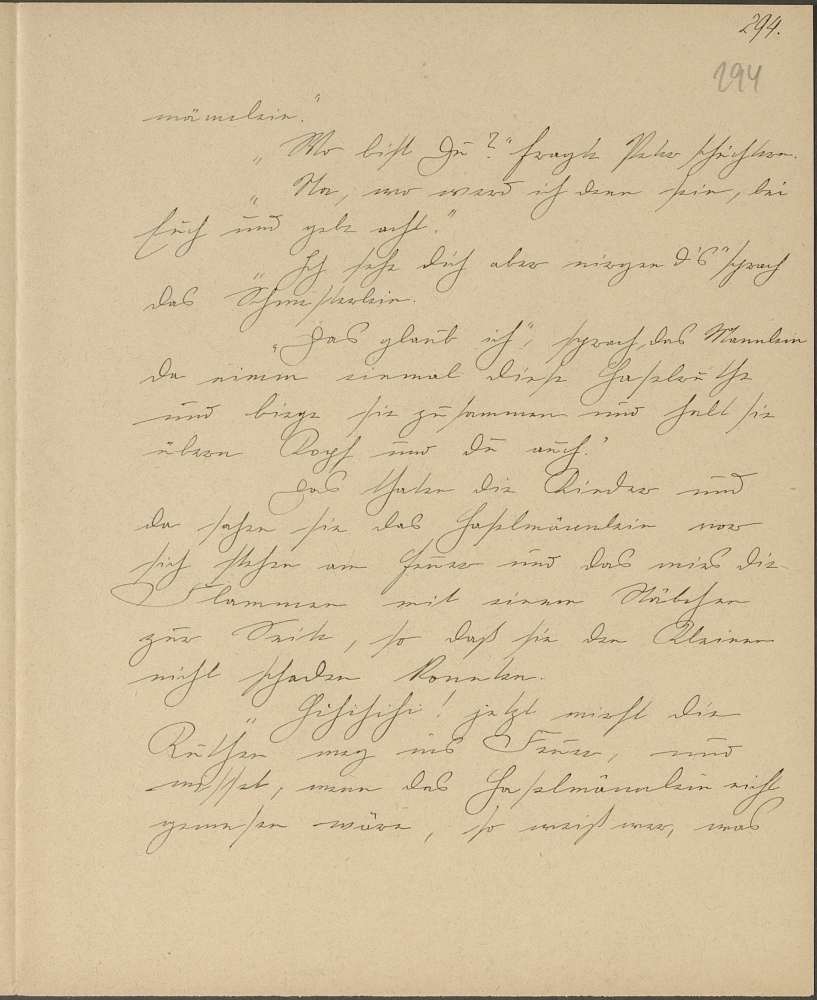 294.
294
männlein."
„Wo bist Du?" fragte Peter schüchtern.
„Na, wo werd ich denn sein, bei
Euch und gebe acht."
„Ich sehe dich aber nirgends" sprach
das Schwesterlein.
„Das glaub ich", sprach das Mannlein
da nimm einmal diese Haselruthe
und biege sie zusammen und halt sie
übern Kopf und du auch."
Das thaten die Kinder und
da sahen sie das Haselmännlein vor
sich stehen am Feuer und das wies die
Flammen mit einem Stäbchen
zur Seite, so daß sie den Kleinen
nicht schaden konnten.
„Hihihihi! jetzt werft die
Ruthen weg ins Feuer, und
wisset, wenn das Haselmännlein nicht
gewesen wäre, so weiß wer, was